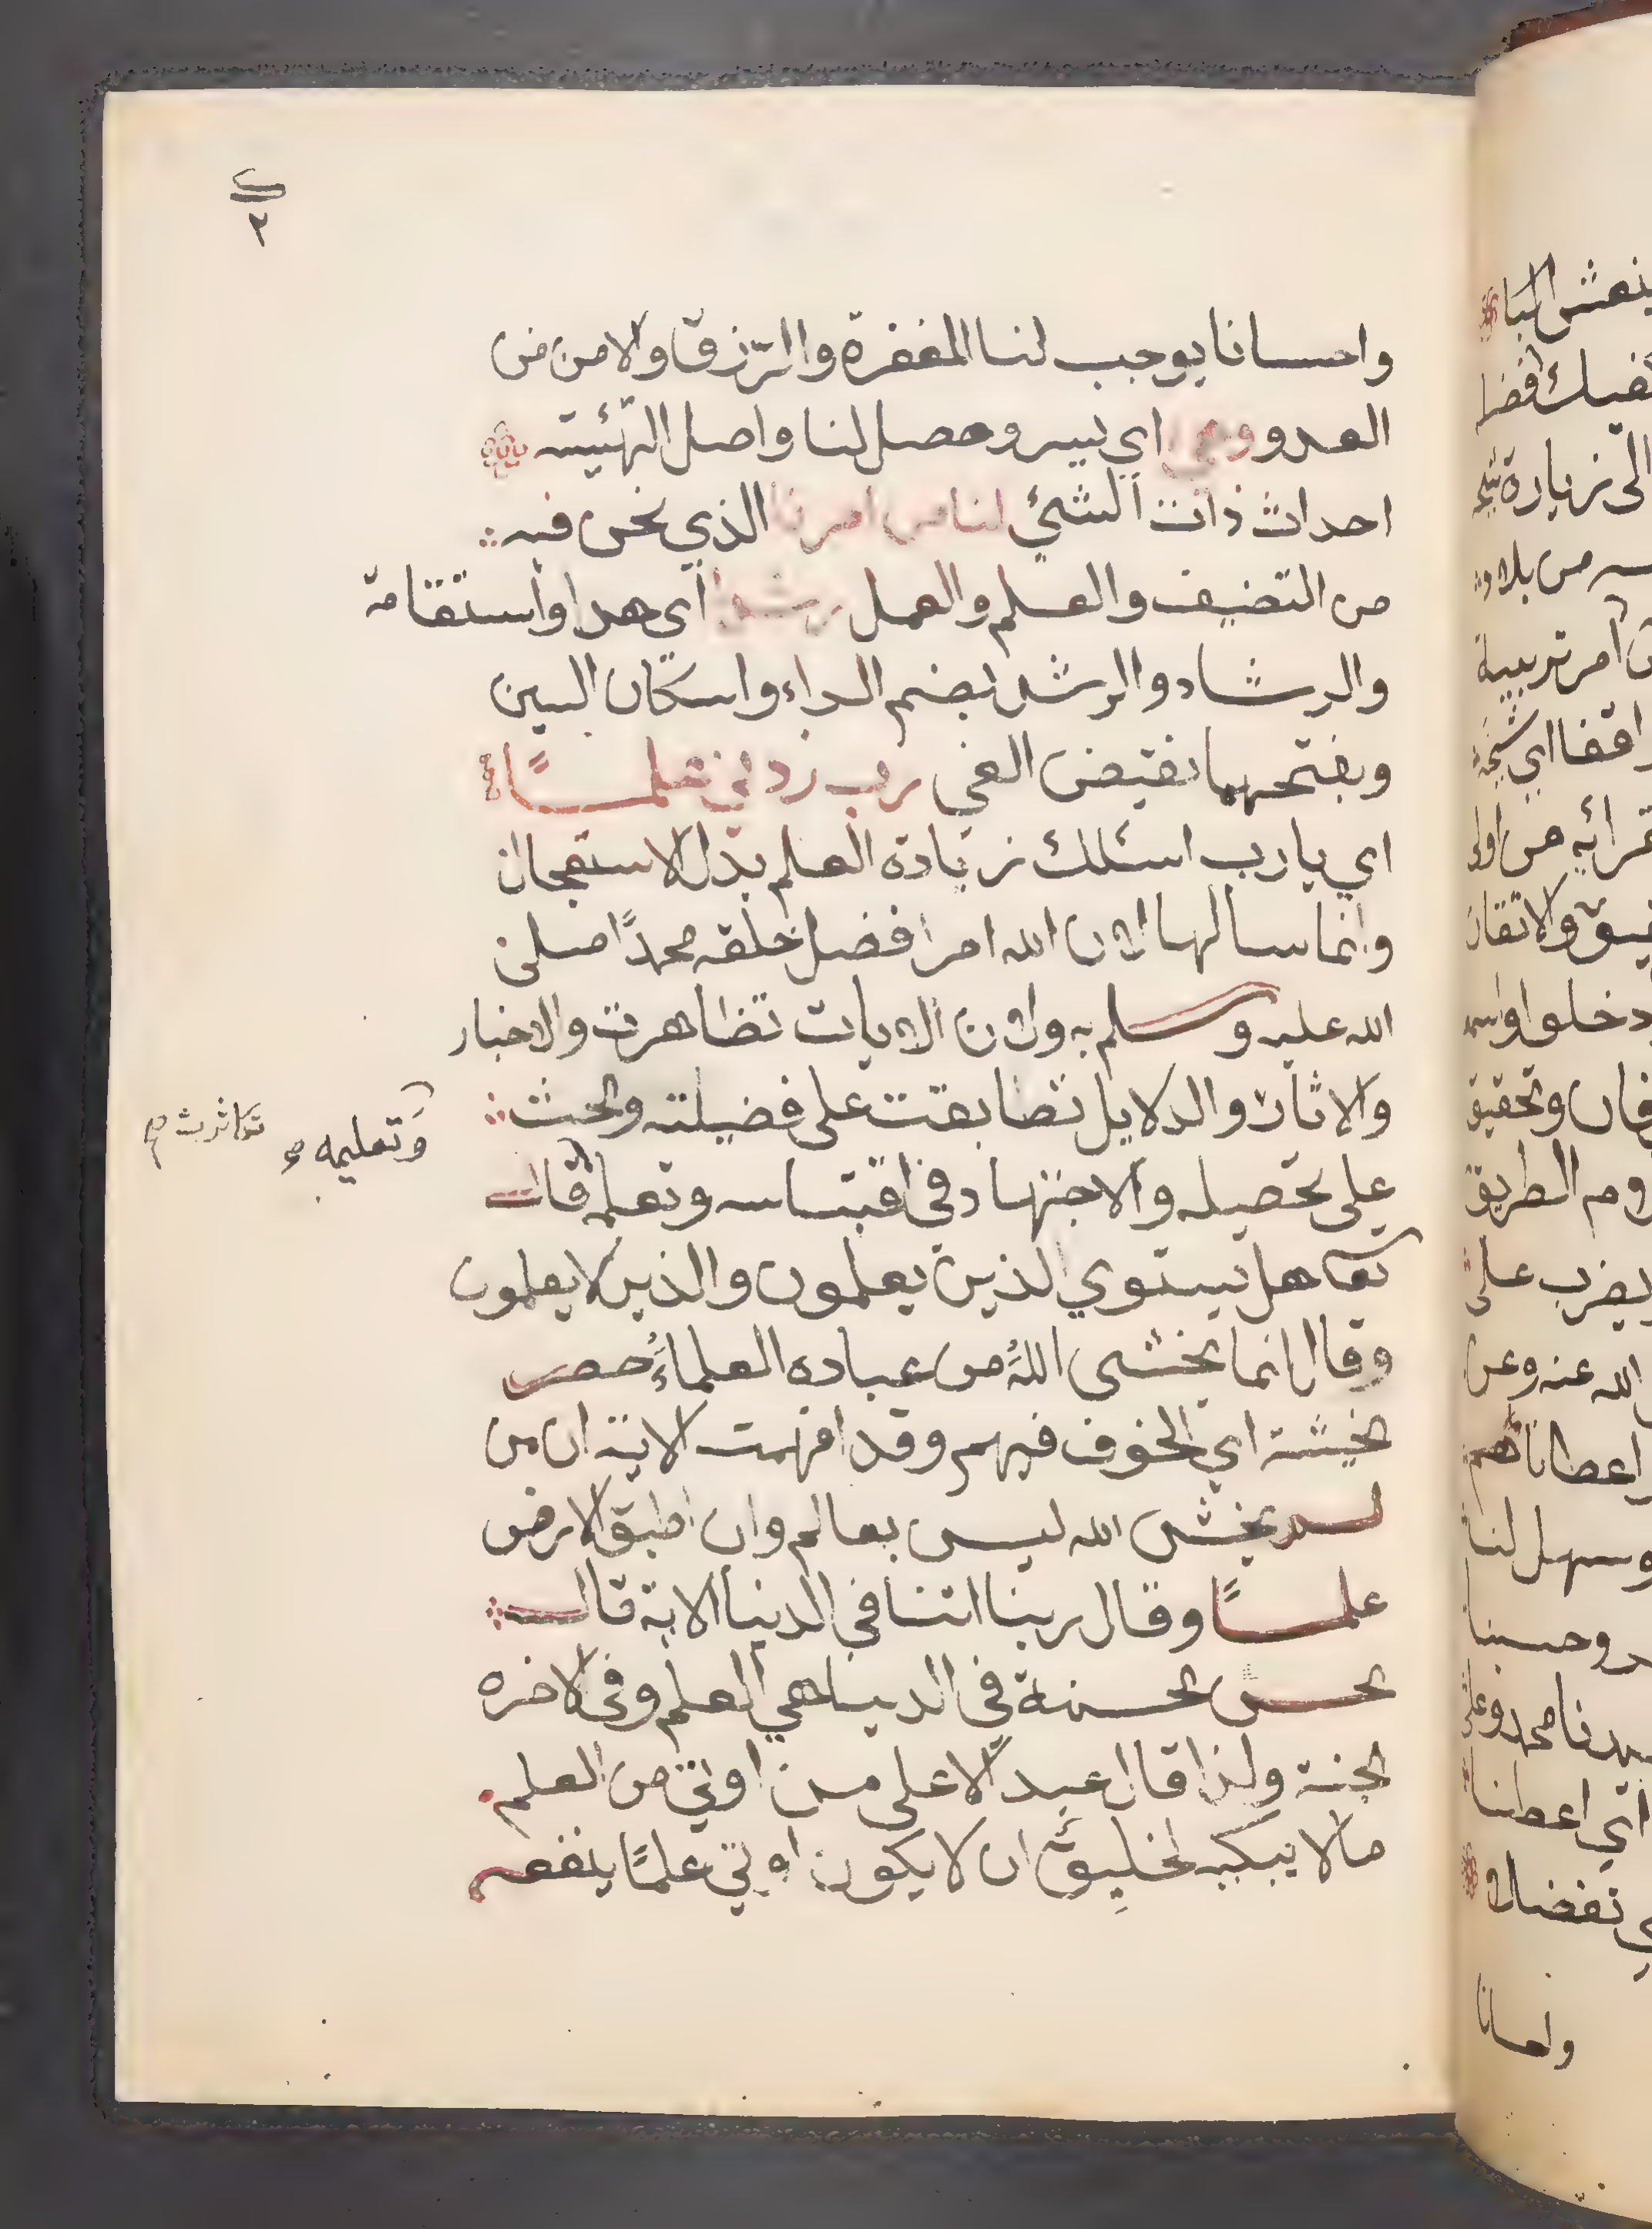 ٢
واحسانا يوجب لنا المغفرة والرزق والامن من
العدو وهيئ اي يسر وحصل لنا واصل التهيئته
احداث ذات الشئ لنا من امرنا الذي نحن فيه
من التضيف والعلم والعمل رشدا اي هدا واستقامة
والرشاد والرشد بضم الراء واسكان الشين
وبفتحهما نقيض الغي رب زدني علمًا
اي يا رب اسئلك زيادة العلم بدل الاستعجال
وانما سالها لان الله امر افضل خلقه محمدًا صلى
الله عليه وسلم به ولان الايات تظاهرت والاخبار
والاثار والدلايل تطابقت على فضيلته والحث
على تحصيله والاجتهاد في اقتباسه وتعلمه قال
وتعليمه صح
تكاثرت صح
تعا هل يستوي الذين يعلمون والذين لا يعلمون
وقال انما يخشى اللهُ من عباده العلماءُ حصر
الخشية اي الخوف فيهم وقد افهمت الاية ان من
لم يخش الله ليس بعالم وان اطبق الارض
علمًا وقال ربنا اتنا في الدنيا الاية قال
الحسن الحسنة في الدنيا هي العلم وفي الاخره
الجنة ولذا قال عبد الاعلى من اوتي من العلم
ما لا يبكيه لخليق ان لا يكون اوتي علمًا ينفعه